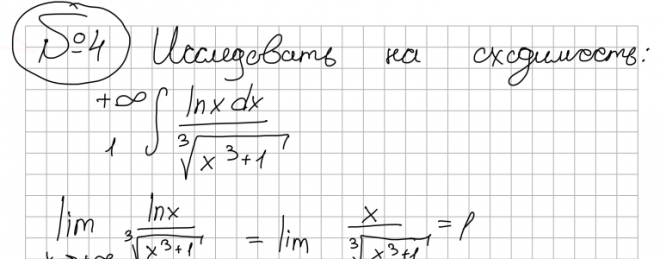 №4 Исследовать на сходимость:
+∞
∫ ln x dx / ∛(x³+1)
1
lim ln x / ∛(x³+1) = lim x / ∛(x³+1) = 1